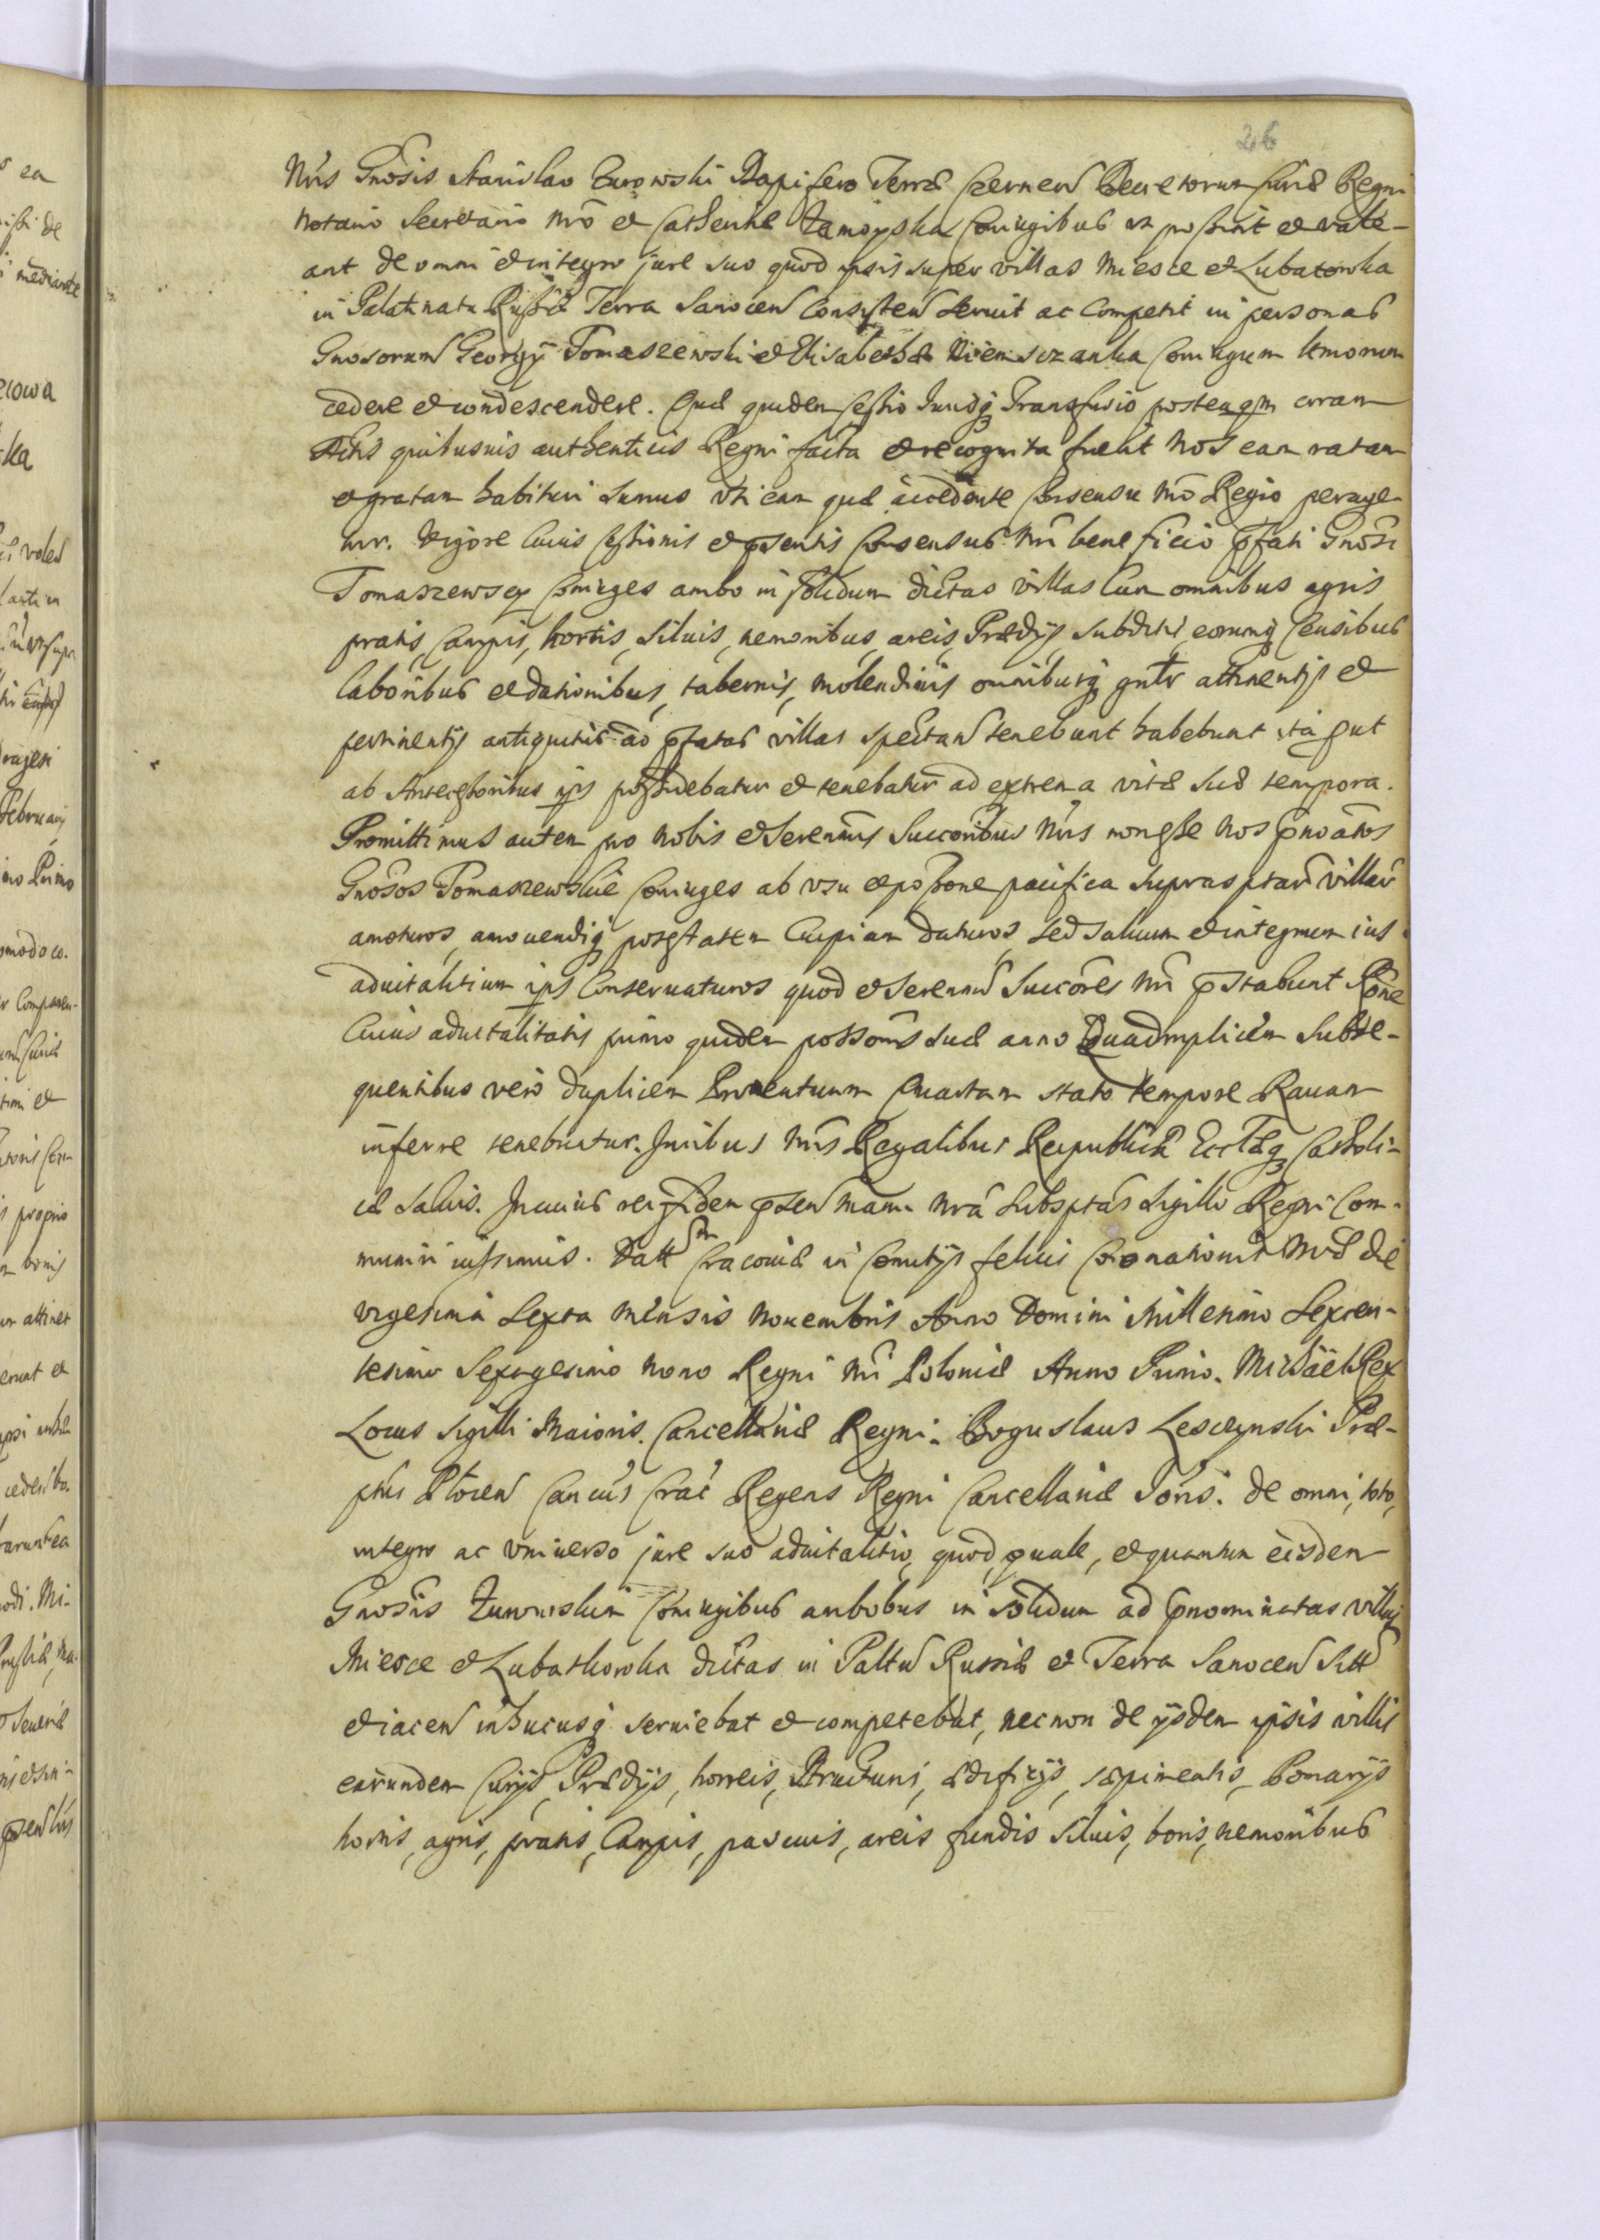 26
Nris Gnosis Stanislao Zurowski Dapifero Terræ Czerneń Decretorum Curiæ Regni
Notario Secretario Nrō et Catherinæ Zamoyska Coniugibus ut possint et vale-
ant de omni et integro jure suo quod ipsis super villas Miesce et Lubatowka
in Palatinatu Russiæ Terra Sanoceń Consisteń Seruit ac Competit in personas
Gnosorum Georgÿ Tomaszewski et Elisabethæ Coniugum
cedere et condescendere. Quæ quidem Cessio Jurisq Transfusio posteaqm coram
Actis quibusuis authenticis Regni facta et recognita fuerit Nos eam ratam
et gratam habituri sumus uti eam quæ accedente Consensu Nrō Regio perage-
tur. Vigore Cuius Cessionis et pñsentis Consensus Nrī beneficio pfati Gnosi
Tomaszewscy Coniuges ambo in solidum dictas villas Cum omnibus agris
pratis, Campis, hortis, Siluis, nemoribus, areis, Prædijs, subditis, eorumq Censibus
laboribus et dationibus, tabernis, molendinis omnibusq gnlr attinentijs et
pertinentijs antiquitus ad pfatas villas spectań tenebunt habebunt ita put
ab Antecessoribus ipsis possidebatur et tenebatur ad extrema vitæ suæ tempora.
Promittimus autem pro Nobis et Serenmis Succoribus Nris non esse Nos pnoātos
Gnosos Tomaszewskie Coniuges ab usu et possone pacifica suprasptarū villarū
amoturos, amouendiq potestatem Cuipiam daturos, sed saluum et integrum ius
aduitalitium ipsis Conseruaturos quod et Serenmi Succores Nrī pstabunt Rone
Cuius aduitalitatis primo quidem possonis suæ anno Quadruplicem Subse-
quentibus vero duplicem Prouentuum Quartam stato tempore Rauam
inferre tenebuntur. Juribus Nris Regalibus Reipublicæ Ecclæq Catholi-
cæ Saluis. In cuius rei fidem pseń manu Nra Subsptas Sigillo Regni Com-
muniri iussimus. Datt Cracouiæ in Comitijs felicis Coronationis Nræ die
vigesima Sexta Mensis Nouembris Anno Domini Millesimo Sexcen-
tesimo Sexagesimo Nono Regni Nrī Poloniæ Anno Primo. Michaël Rex
Locus Sigilli Maioris Cancellariæ Regni. Boguslaus Lesczynski Præ-
ptus Płoceń Canćus Crać Regens Regni Cancellariæ. De omni, toto,
integro ac vniuerso jure suo aduitalitio, quod, quale, et quantum eisdem
Gnosis Zurowskim Coniugibus ambobus in solidum ad pnominatas villas
Miesce et Lubathowka dictas in Palttu Russiæ et Terra Sanoceń Sitt
et iaceń inhucusq seruiebat et competebat, necnon de ijsdem ipsis villis
earundem Curijs, Prædijs, horreis, structuris, ædificijs, sæpimentis, Pomarijs
hortis, agris, pratis, Campis, pascuis, areis fundis Siluis, boris, nemoribus